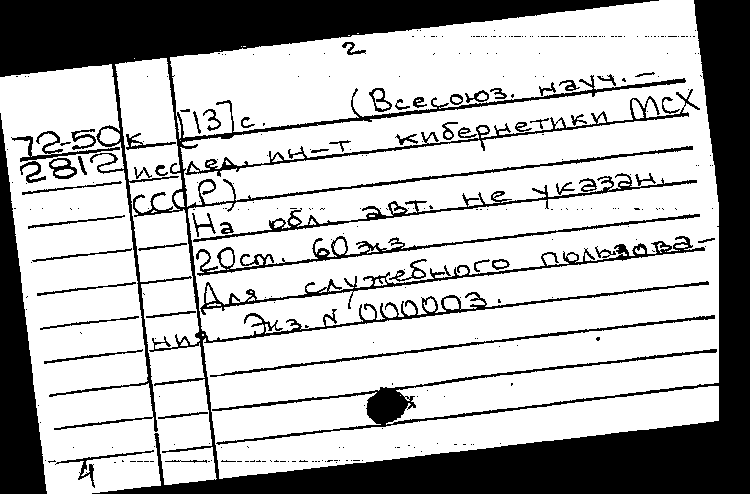 2
72-50к [13] с. (Всесоюз. науч.-
2812 исслед. ин-т кибернетики МСХ
СССР).
На обл. авт. не указан.
20 cm. 60 экз.
Для служебного пользова-
ния. Экз. N 000003.
х
4